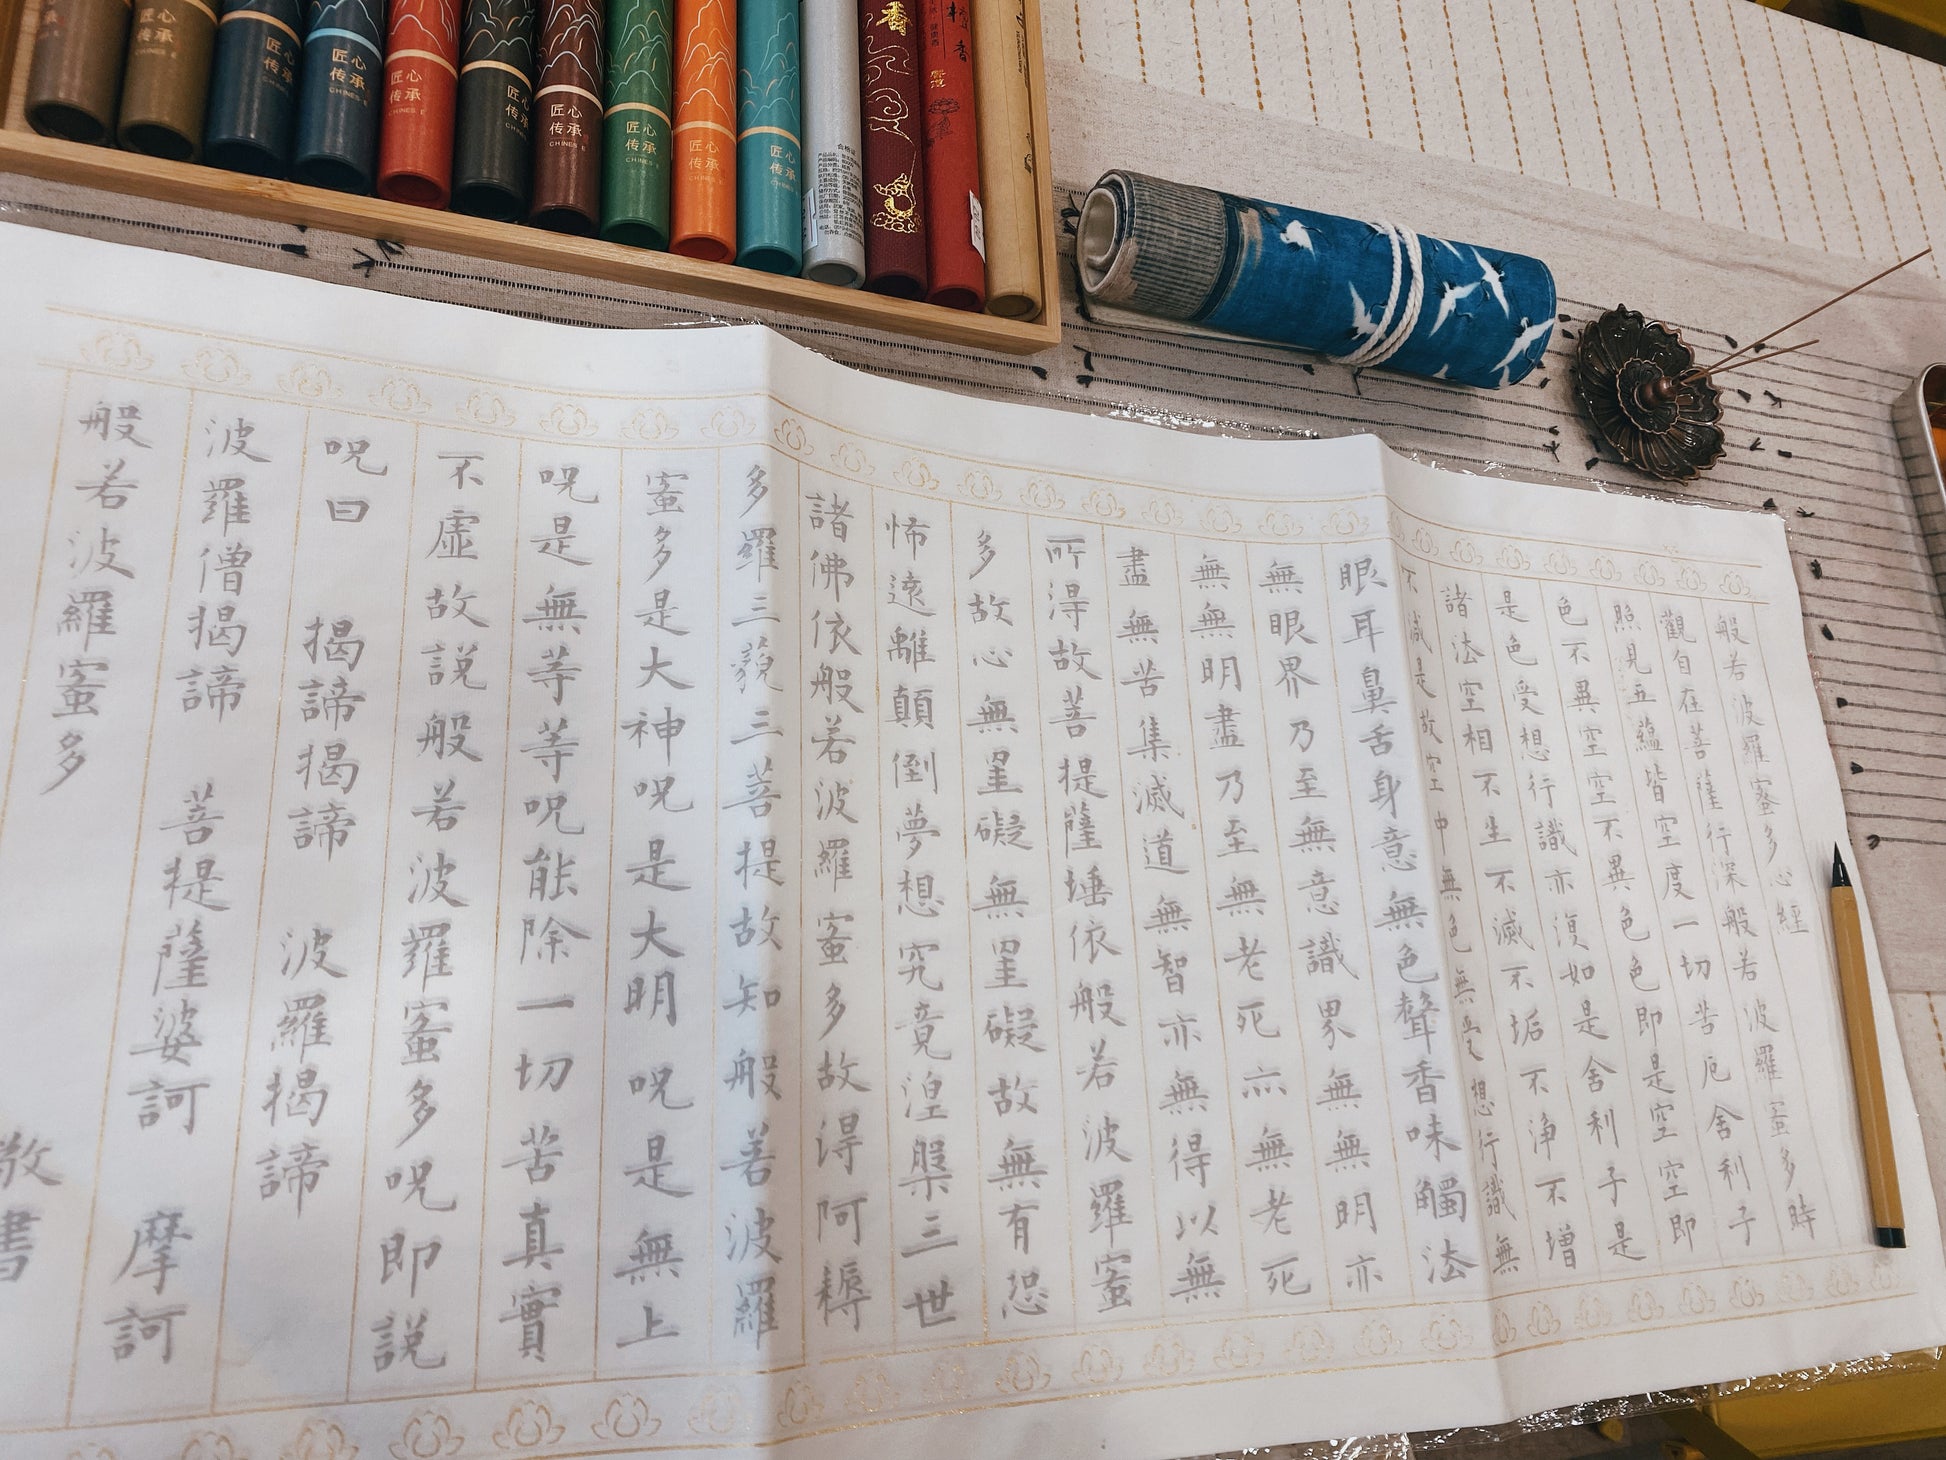 匠心
传承
CHINES E
匠心
传承
CHINES E
匠心
传承
CHINES E
匠心
传承
CHINES E
匠心
传承
CHINES E
匠心
传承
CHINES E
匠心
传承
CHINES E
匠心
传承
CHINES E
匠心
传承
CHINES E
合格证
香
香
般若波羅蜜多心經
觀自在菩薩行深般若波羅蜜多時
照見五蘊皆空度一切苦厄舍利子
色不異空空不異色色即是空空即
是色受想行識亦復如是舍利子是
諸法空相不生不滅不垢不淨不增
不減是故空中無色無受想行識無
眼耳鼻舌身意無色聲香味觸法
無眼界乃至無意識界無無明亦
無無明盡乃至無老死亦無老死
盡無苦集滅道無智亦無得以無
所得故菩提薩埵依般若波羅蜜
多故心無罣礙無罣礙故無有恐
怖遠離顛倒夢想究竟涅槃三世
諸佛依般若波羅蜜多故得阿耨
多羅三藐三菩提故知般若波羅
蜜多是大神呪是大明呪是無上
呪是無等等呪能除一切苦真實
不虛故說般若波羅蜜多呪即說
呪曰 揭諦揭諦 波羅揭諦
波羅僧揭諦 菩提薩婆訶 摩訶
般若波羅蜜多
敬書